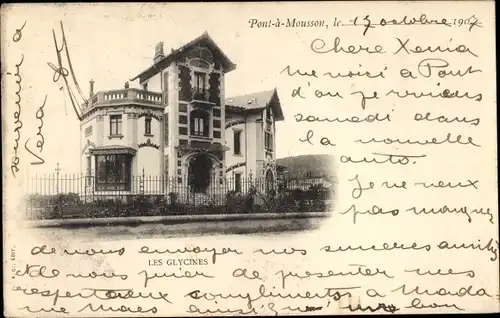 Pont-à-Mousson, le 17 octobre 1907
Chere Xenia
me voici a Pont
d'ou je reviens
samedi dans
la nouvelle
auto.
Je ne veux
pas manquer
de vous envoyer nos sinceres amitiés
et vous prier de presenter mes
respectueux compliments a Mada
me Maes ainsi que
LES GLYCINES
souvenir a
Vera